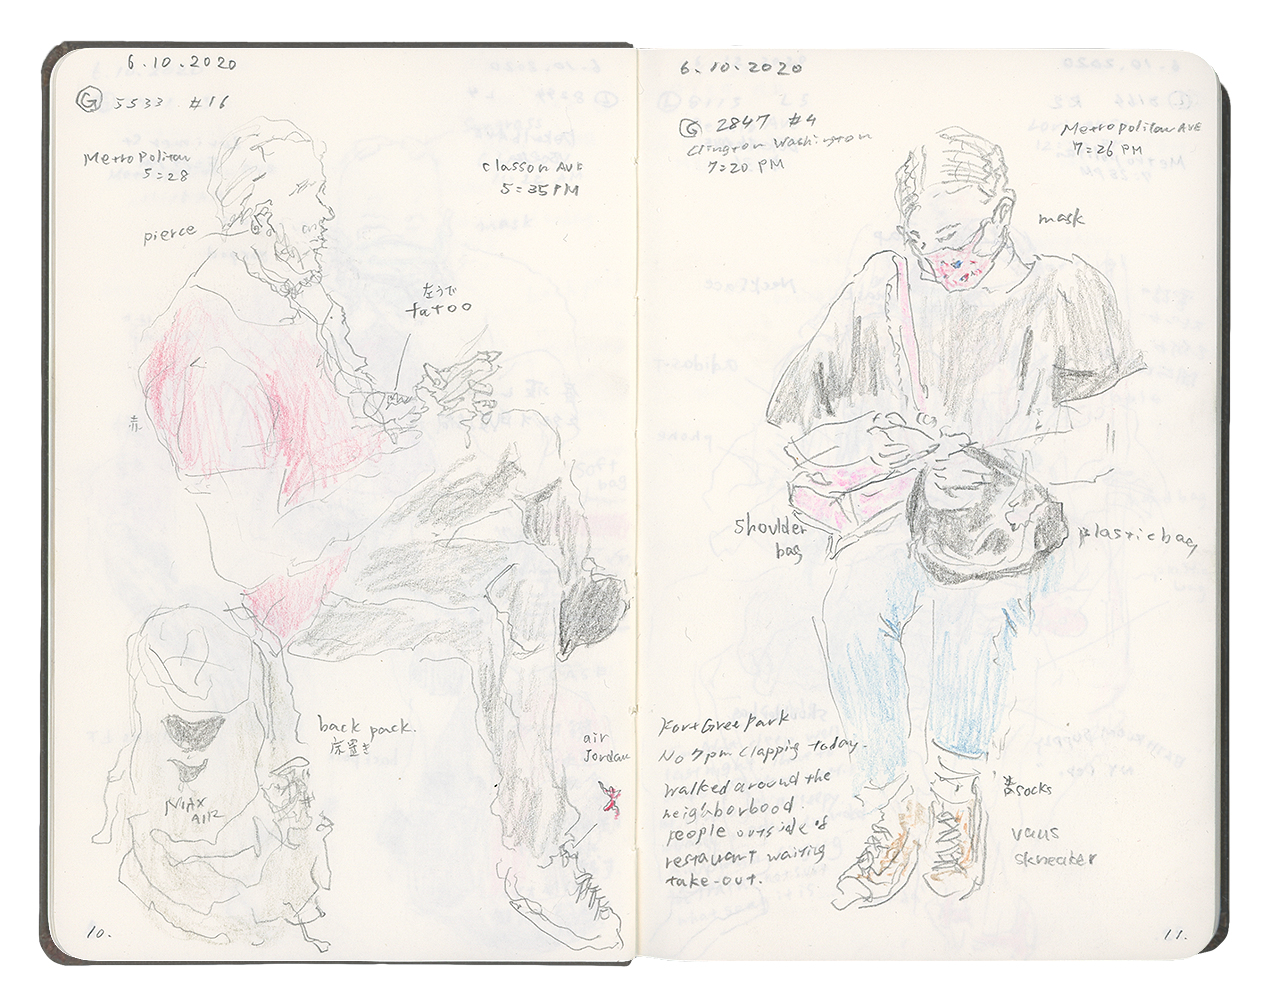 6.10.2020
G 5533 #16
Metropolitan
5:28
classon Ave
5:35PM
pierce
左うで
tatoo
赤
back pack.
床置き
NIAX
AIR
air
Jordan
10.
6.10.2020
G 2847 #4
Clington Washington
7:20 PM
Metropolitan AVE
7:26 PM
mask
Shoulder
bag
plastic bag
Fort Gree Park
No 7pm clapping today.
walked around the
neighborhood.
people outside of
restaurant waiting
take-out.
socks
vans
skneaker
11.